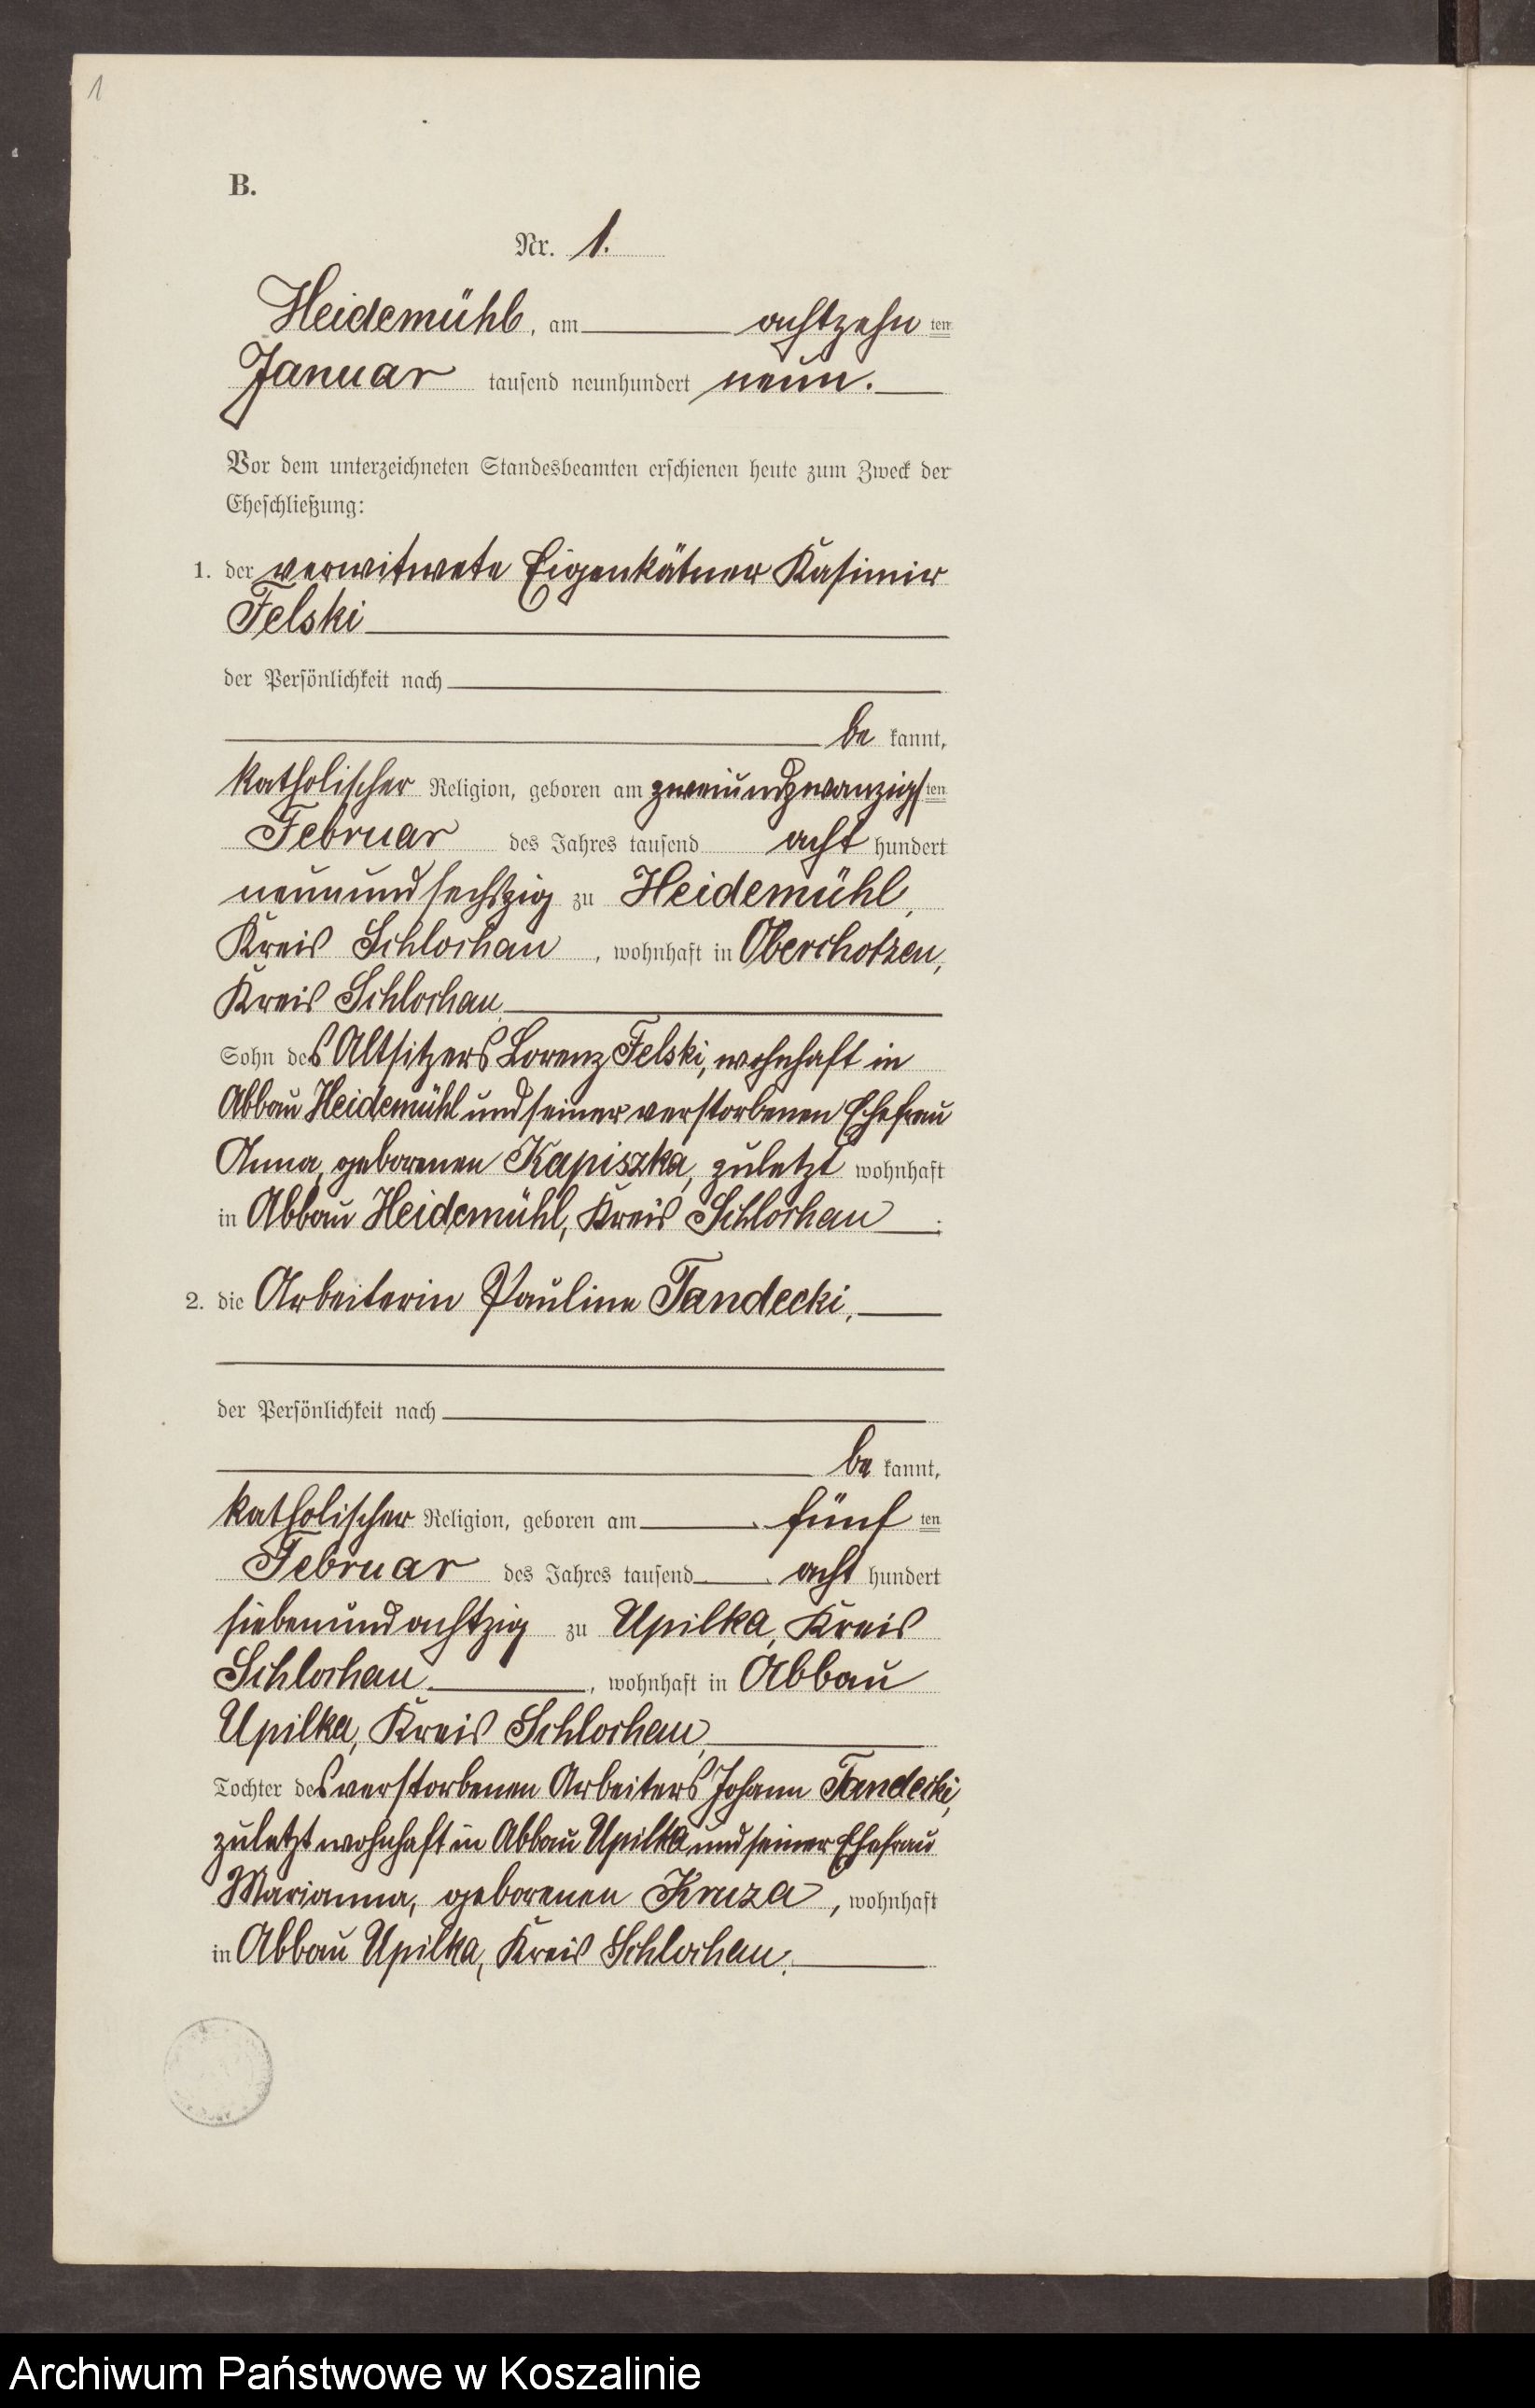 1
B.
Nr. 1.
Heidemühl, am achtzehn ten
Januar tausend neunhundert neun.
Vor dem unterzeichneten Standesbeamten erschienen heute zum Zweck der
Eheschließung:
1. der verwitwete Eigenkätner Kasimir
Felski
der Persönlichkeit nach
be kannt,
katholischer Religion, geboren am zweiundzwanzigsten
Februar des Jahres tausend acht hundert
neunundsechszig zu Heidemühl,
Kreis Schlochau, wohnhaft in Oberchotzen,
Kreis Schlochau,
Sohn des Altsitzers Lorenz Felski, wohnhaft in
Abbau Heidemühl und seiner verstorbenen Ehefrau
Anna, geborenen Kapiszka, zuletzt wohnhaft
in Abbau Heidemühl, Kreis Schlochau;
2. die Arbeiterin Pauline Tandecki,
der Persönlichkeit nach
be kannt,
katholischer Religion, geboren am fünf ten
Februar des Jahres tausend acht hundert
siebenundachtzig zu Upilka, Kreis
Schlochau, wohnhaft in Abbau
Upilka, Kreis Schlochau,
Tochter des verstorbenen Arbeiters Johann Tandecki,
zuletzt wohnhaft in Abbau Upilka und seiner Ehefrau
Marianna, geborenen Kruza, wohnhaft
in Abbau Upilka, Kreis Schlochau.
Archiwum Państwowe w Koszalinie